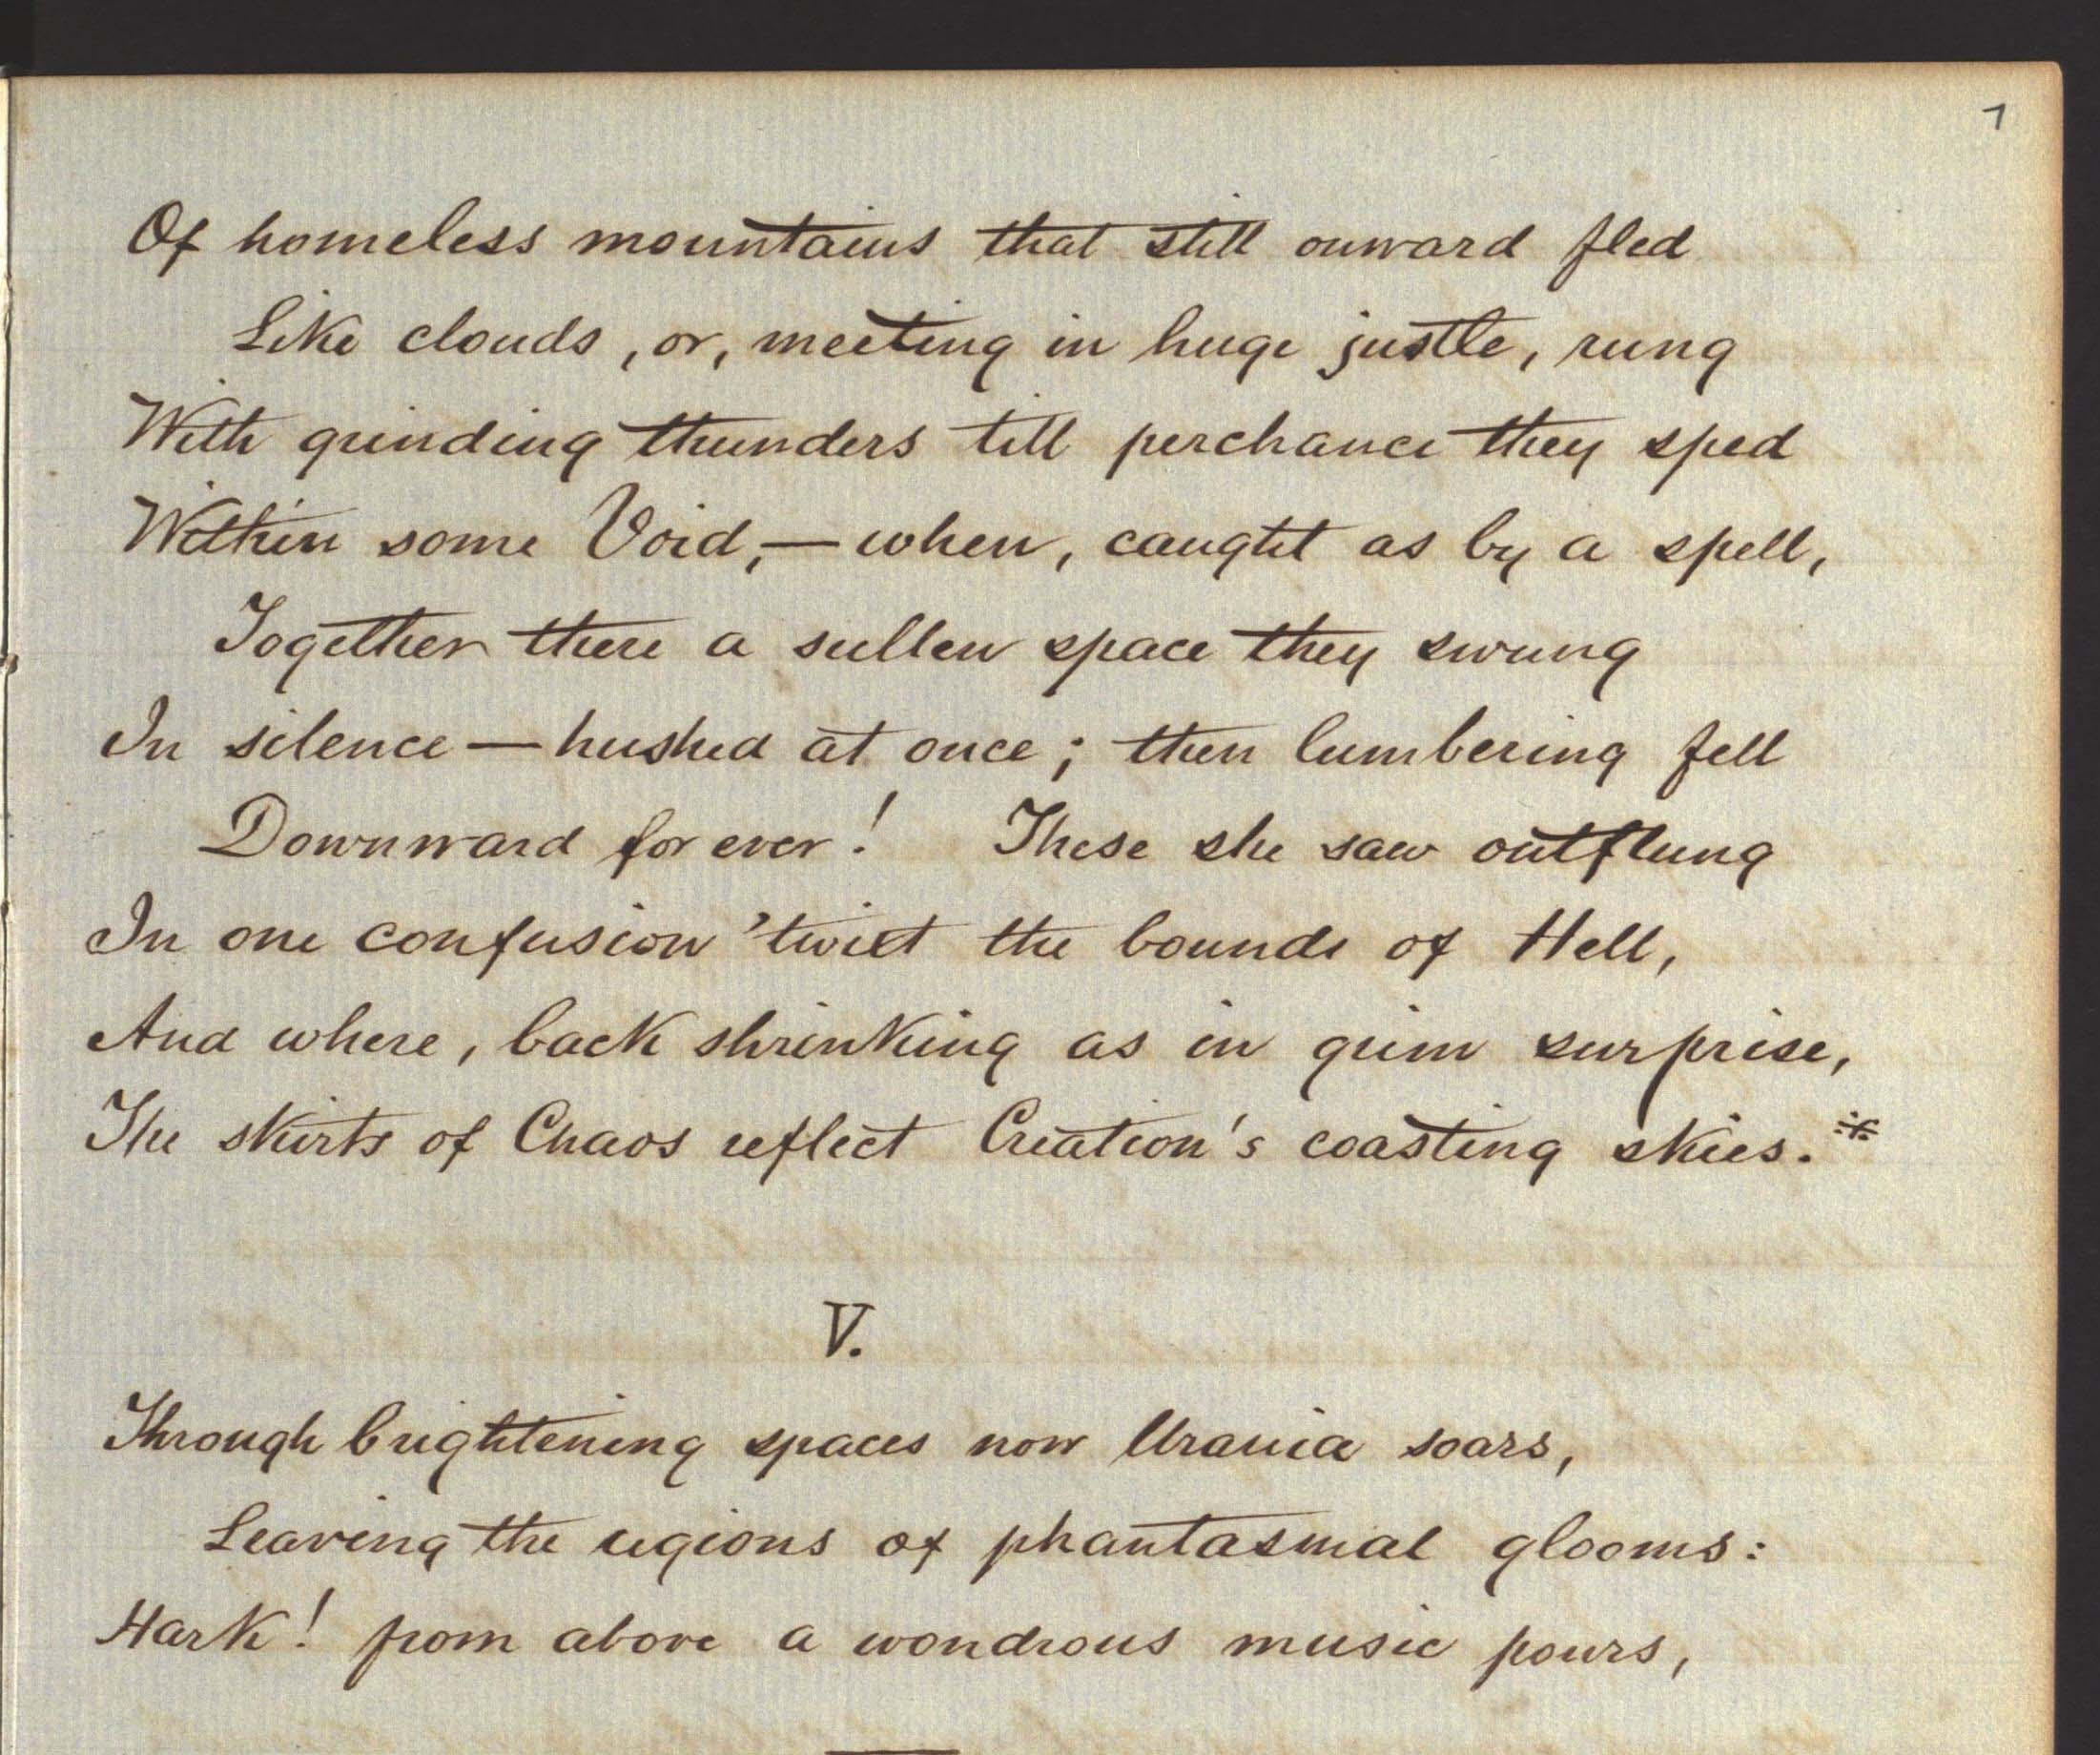 7
Of homeless mountains that still onward fled
Like clouds, or, meeting in huge justle, rung
With grinding thunders till perchance they sped
Within some Void,—when, caught as by a spell,
Together there a sullen space they swung
In silence—hushed at once; then lumbering fell
Downward for ever! These she saw outflung
In one confusion 'twixt the bounds of Hell,
And where, back shrinking as in grim surprise,
The skirts of Chaos reflect Creation's coasting skies.*
V.
Through brightening spaces now Urania soars,
Leaving the regions of phantasmal glooms:
Hark! from above a wondrous music pours,